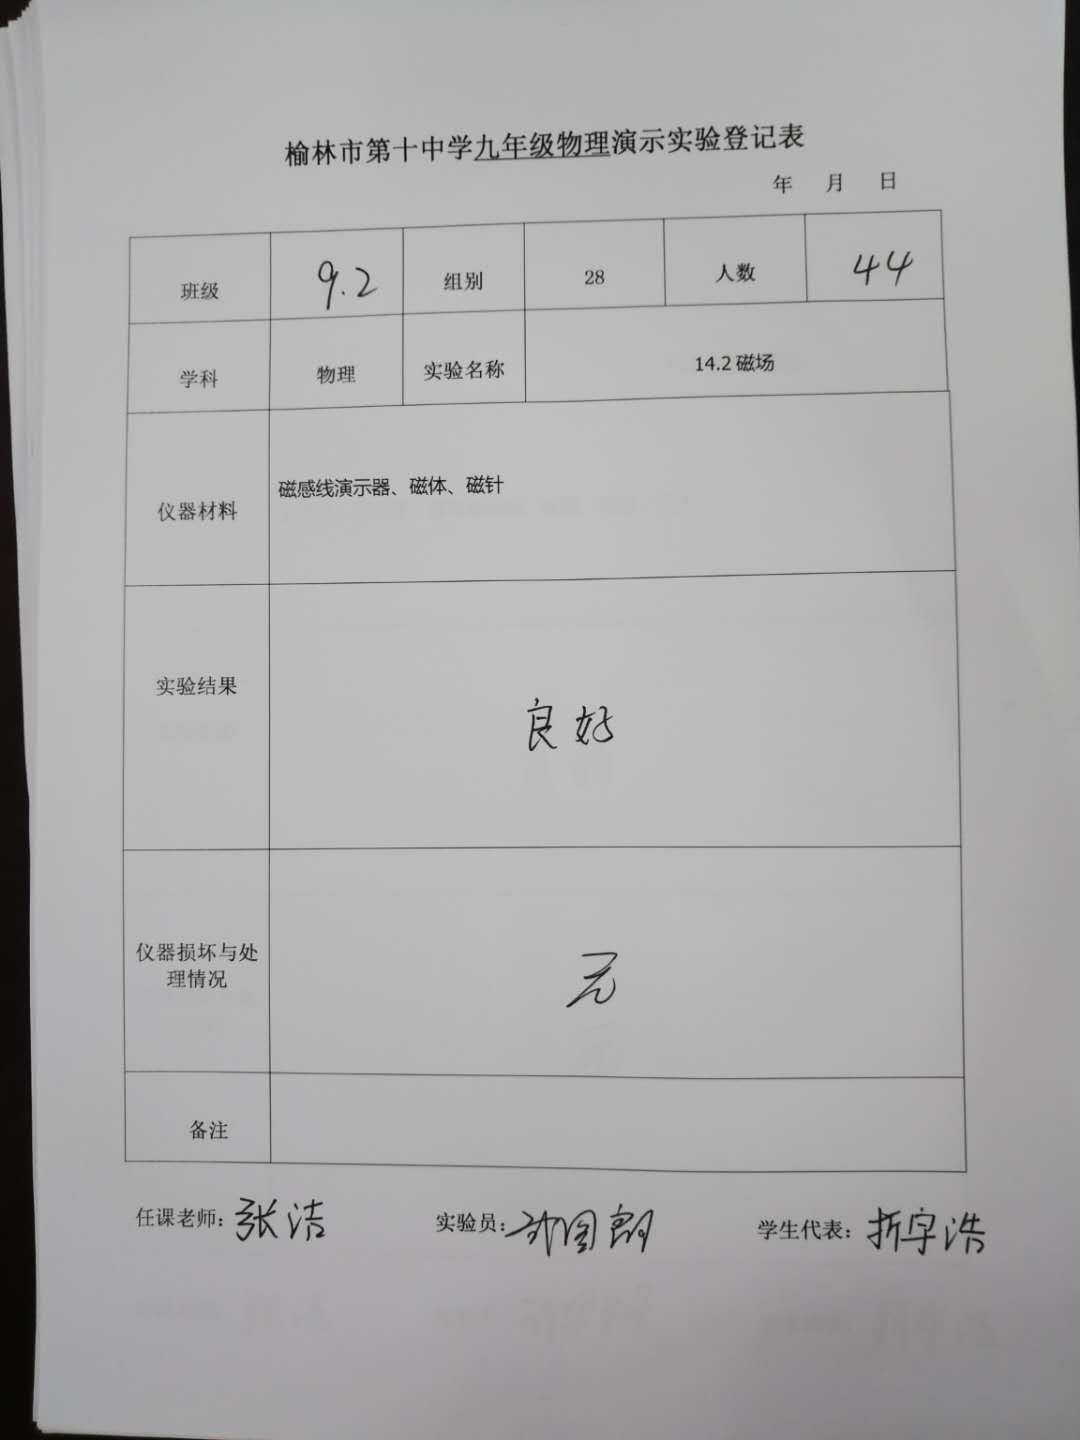 榆林市第十中学九年级物理演示实验登记表
年 月 日
班级 9.2 组别 28 人数 44
学科 物理 实验名称 14.2 磁场
仪器材料 磁感线演示器、磁体、磁针
实验结果 良好
仪器损坏与处
理情况 无
备注
任课老师: 张洁 实验员: 学生代表: 折宇浩